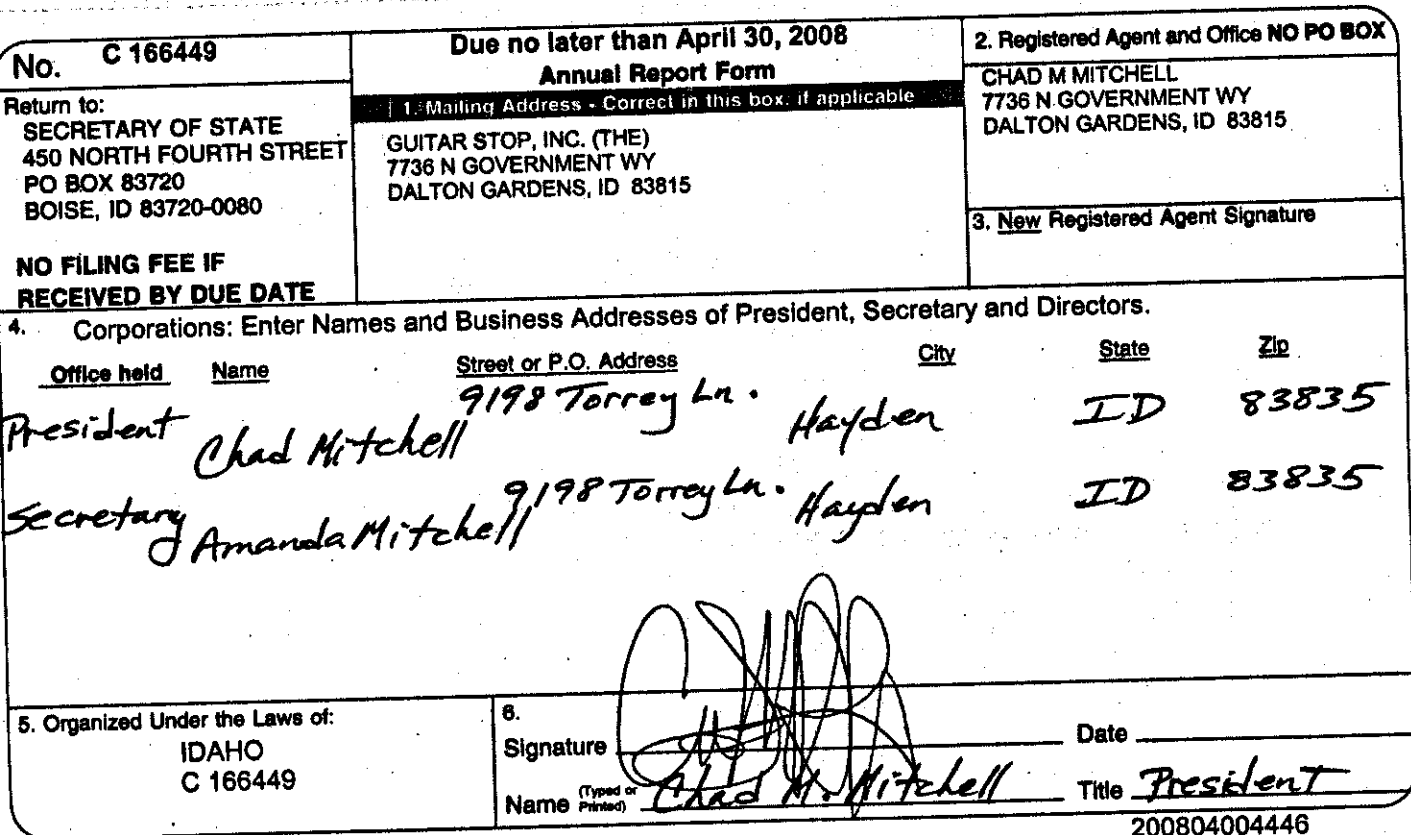 No. C 166449
Return to:
SECRETARY OF STATE
450 NORTH FOURTH STREET
PO BOX 83720
BOISE, ID 83720-0080
NO FILING FEE IF
RECEIVED BY DUE DATE
Due no later than April 30, 2008
Annual Report Form
1. Mailing Address - Correct in this box, if applicable
GUITAR STOP, INC. (THE)
7736 N GOVERNMENT WY
DALTON GARDENS, ID 83815
2. Registered Agent and Office NO PO BOX
CHAD M MITCHELL
7736 N GOVERNMENT WY
DALTON GARDENS, ID 83815
3. New Registered Agent Signature
4. Corporations: Enter Names and Business Addresses of President, Secretary and Directors.
Office held Name Street or P.O. Address City State Zip
President Chad Mitchell 9198 Torrey Ln. Hayden ID 83835
Secretary Amanda Mitchell 9198 Torrey Ln. Hayden ID 83835
5. Organized Under the Laws of:
IDAHO
C 166449
6.
Signature Date
Name (Typed or Printed) Chad M. Mitchell Title President
200804004446